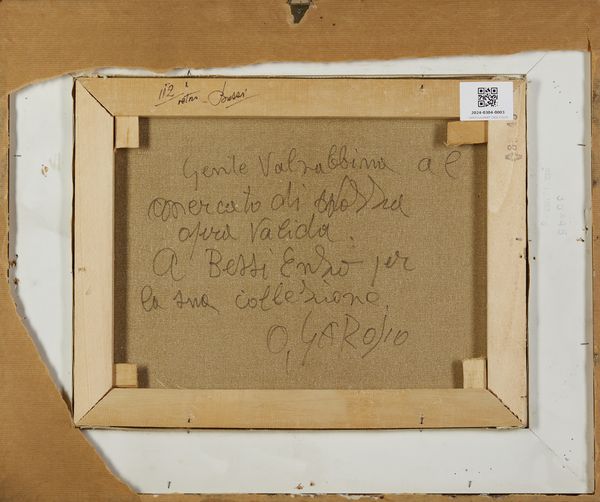 112
retro-
2024-0304-0003
Gente Valsabbina al
mercato di
opera Valida.
A Bessi Enzo per
la sua collezione.
O, GAROSIO